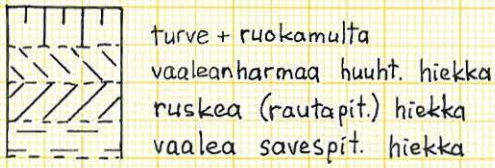 turve + ruokamulta
vaaleanharmaa huuht. hiekka
ruskea (rautapit.) hiekka
vaalea savespit. hiekka